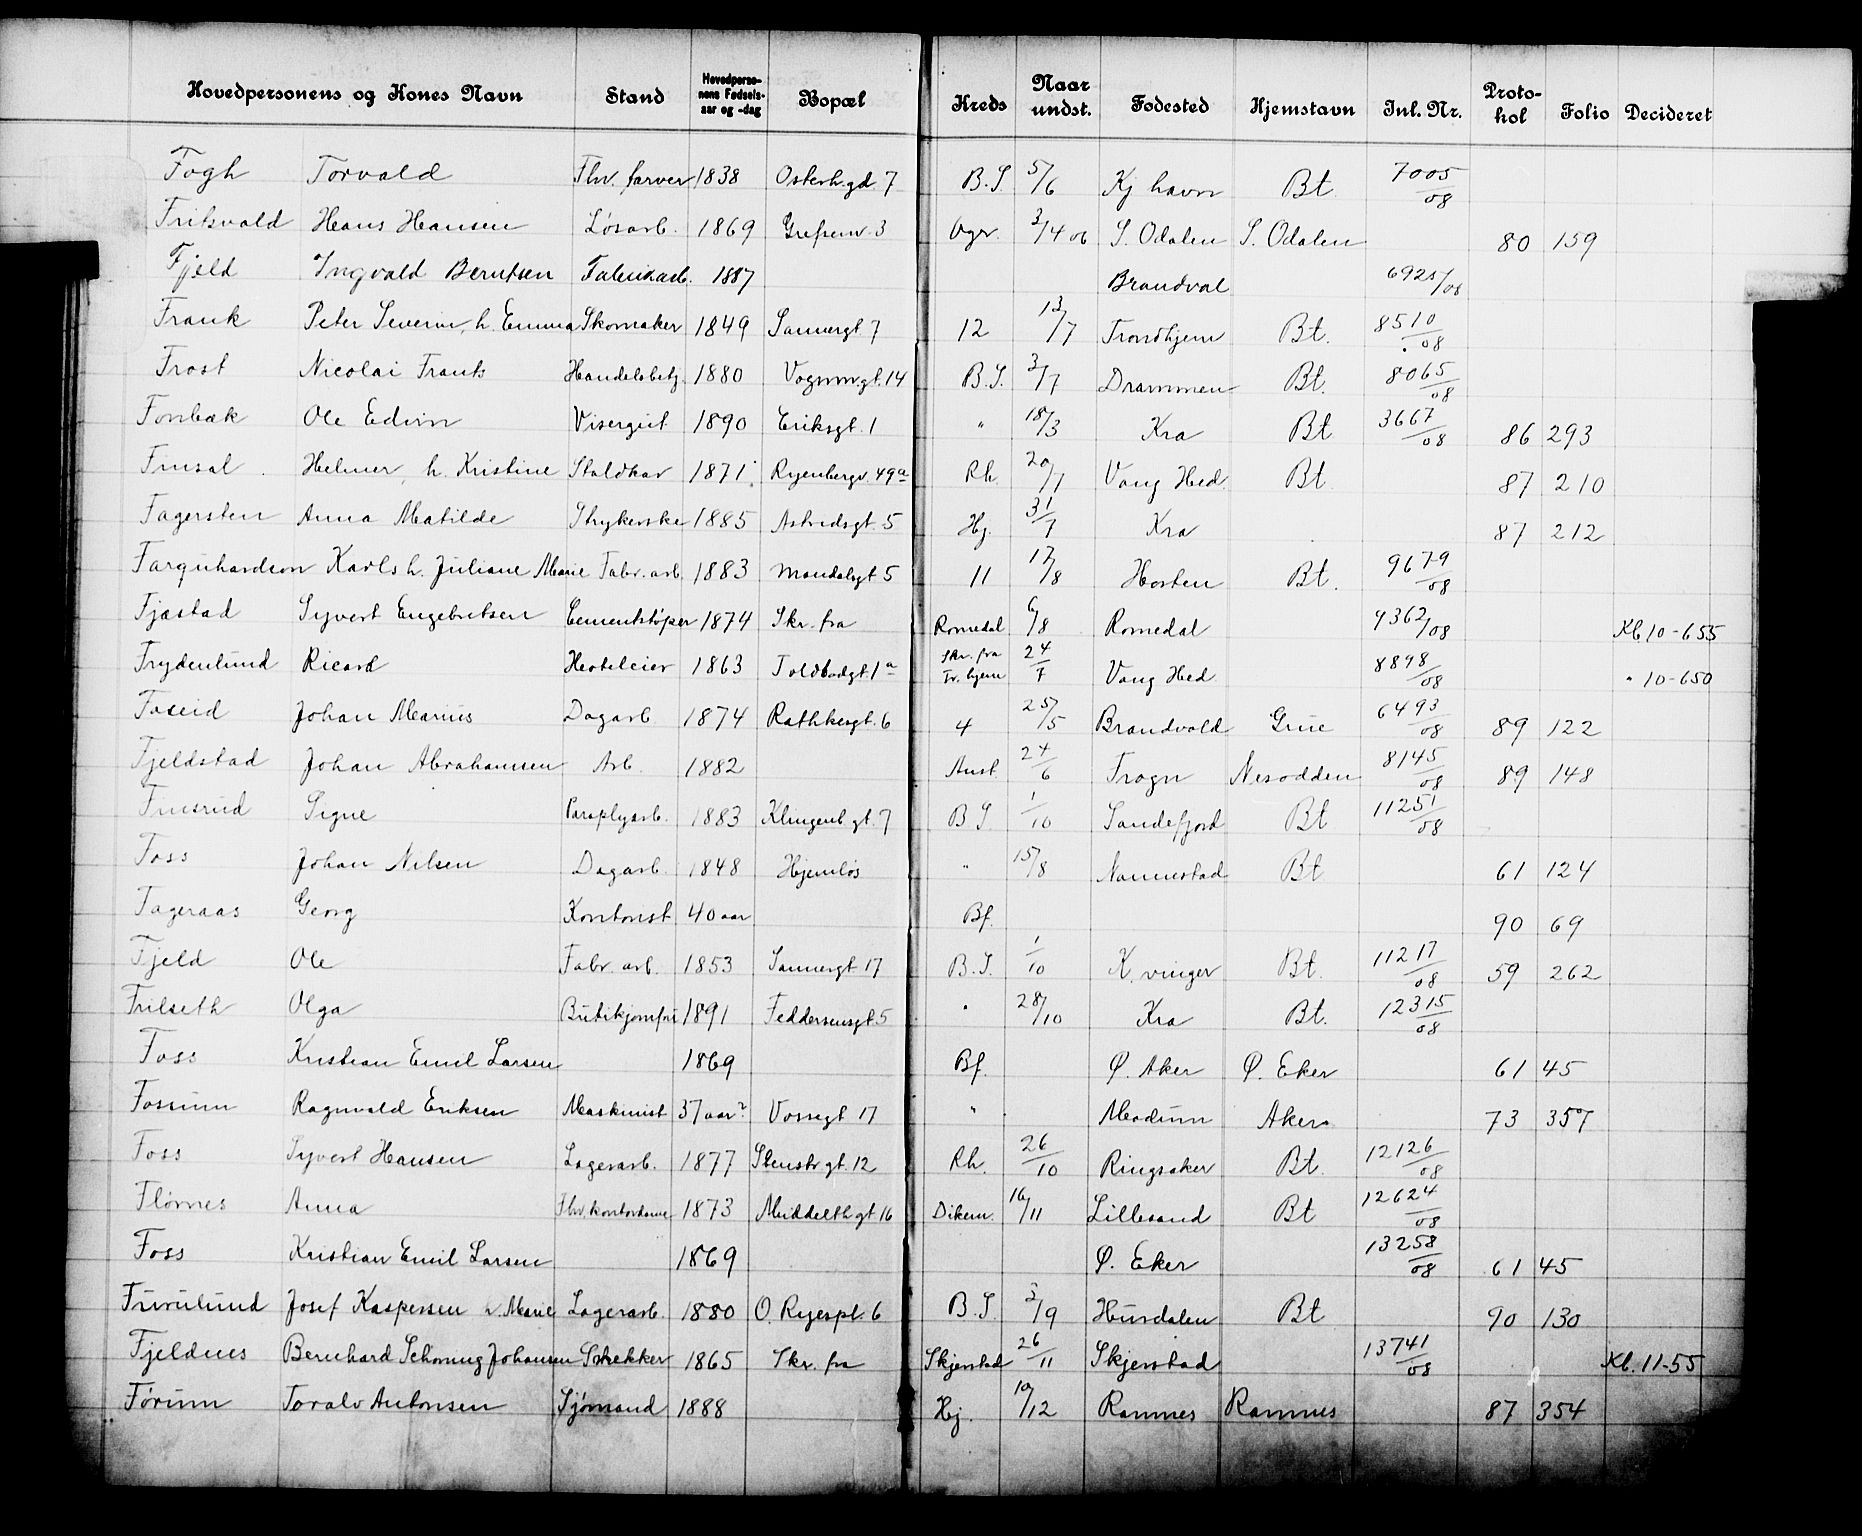 Hovedpersonens og Kones Navn Stand Hovedperso-nens Fødsels-aar og -dag Bopæl Kreds Naar undst. Fødested Hjemstavn Inl. Nr. Proto-kol Folio Decideret
Fogh Torvald Fhv. farver 1838 Osterh.gd 7 B.S 5/6 Kj havn Bt. 7005/08
Friksvald Hans Hansen Løsarb. 1869 Grefsenv. 3 Ogr. 3/4 06 S. Odalen S. Odalen 80 159
Fjeld Ingvald Berntsen Fabrikarb. 1887 Brandval 6925/08
Frank Peter Severin, h. Emma Skomaker 1849 Sannergt 7 12 13/7 Trondhjem Bt. 8510/08
Frost Nicolai Frants Handelsbetj. 1880 Vognm.gt. 14 B.S. 3/7 Drammen Bt. 8065/08
Fonbæk Ole Edvin Visergut 1890 Eriksgt. 1 " 18/3 Kra Bt 3667/08 86 293
Finsal Helmer, h. Kristine Staldkar 1871 Ryenbergv. 49a Rh. 20/7 Vang Hed. Bt. 87 210
Fagersten Anna Matilde Strykerske 1885 Astridsgt. 5 Hj. 31/7 Kra 87 212
Farquhardson Karls h. Juliane Marie Fabr. arb. 1883 Mandalsgt 5 11 17/8 Horten Bt. 9679/08
Fjæstad Syvert Engebretsen Cementstøper 1874 Skr. fra Romedal 6/8 Romedal 9362/08 Kb 10-655
Frydenlund Ricard Hoteleier 1863 Toldbodgt. 1a Skr. fra Tr. hjem 24/7 Vang Hed 8898/08 " 10-650
Foseid Johan Marius Dagarb 1874 Rathkesgt. 6 4 25/5 Brandvold Grue 6493/08 89 122
Fjeldstad Johan Abrahamsen Arb. 1882 Anst. 24/6 Frogn Nesodden 8145/08 89 148
Finsrud Signe Paraplyarb. 1883 Klingenb.gt. 7 B S 1/10 Sandefjord Bt 11251/08
Foss Johan Nilsen Dagarb. 1848 Hjemløs " 15/8 Nannestad Bt 61 124
Fageraas Georg Kontorist 40 aar Bf. 90 69
Fjeld Ole Fabr. arb. 1853 Sannergt 17 B.S. 1/10 K. vinger Bt. 11217/08 59 262
Frilseth Olga Butikjomfru 1891 Feddersensgt. 5 " 28/10 Kra Bt. 12315/08
Foss Kristian Emil Larsen 1869 Bf. Ø. Aker Ø. Eker 61 45
Fossum Ragnvald Eriksen Maskinist 37 aar? Vossegt 17 " Modum Aker 73 357
Foss Syvert Hansen Lagerarb. 1877 Stenstr gt. 12 Rh. 26/10 Ringsaker Bt. 12126/08
Flørnes Anna Fhv. kontordame 1873 Middelth gt 16 Dikem. 16/11 Lillesand Bt 12624/08
Foss Kristian Emil Larsen 1869 Ø. Eker 13258/08 61 45
Furulund Josef Kaspersen h. Marie Lagerarb. 1880 O. Ryespl. 6 B.S. 3/9 Hurdalen Bt 90 130
Fjeldnes Bernhard Schøning Johansen Snekker 1865 Skr. fra Skjerstad 26/11 Skjerstad 13741/08 Kb. 11-55
Førum Toralv Antonsen Sjømand 1888 Hj. 10/12 Ramnes Ramnes 87 354